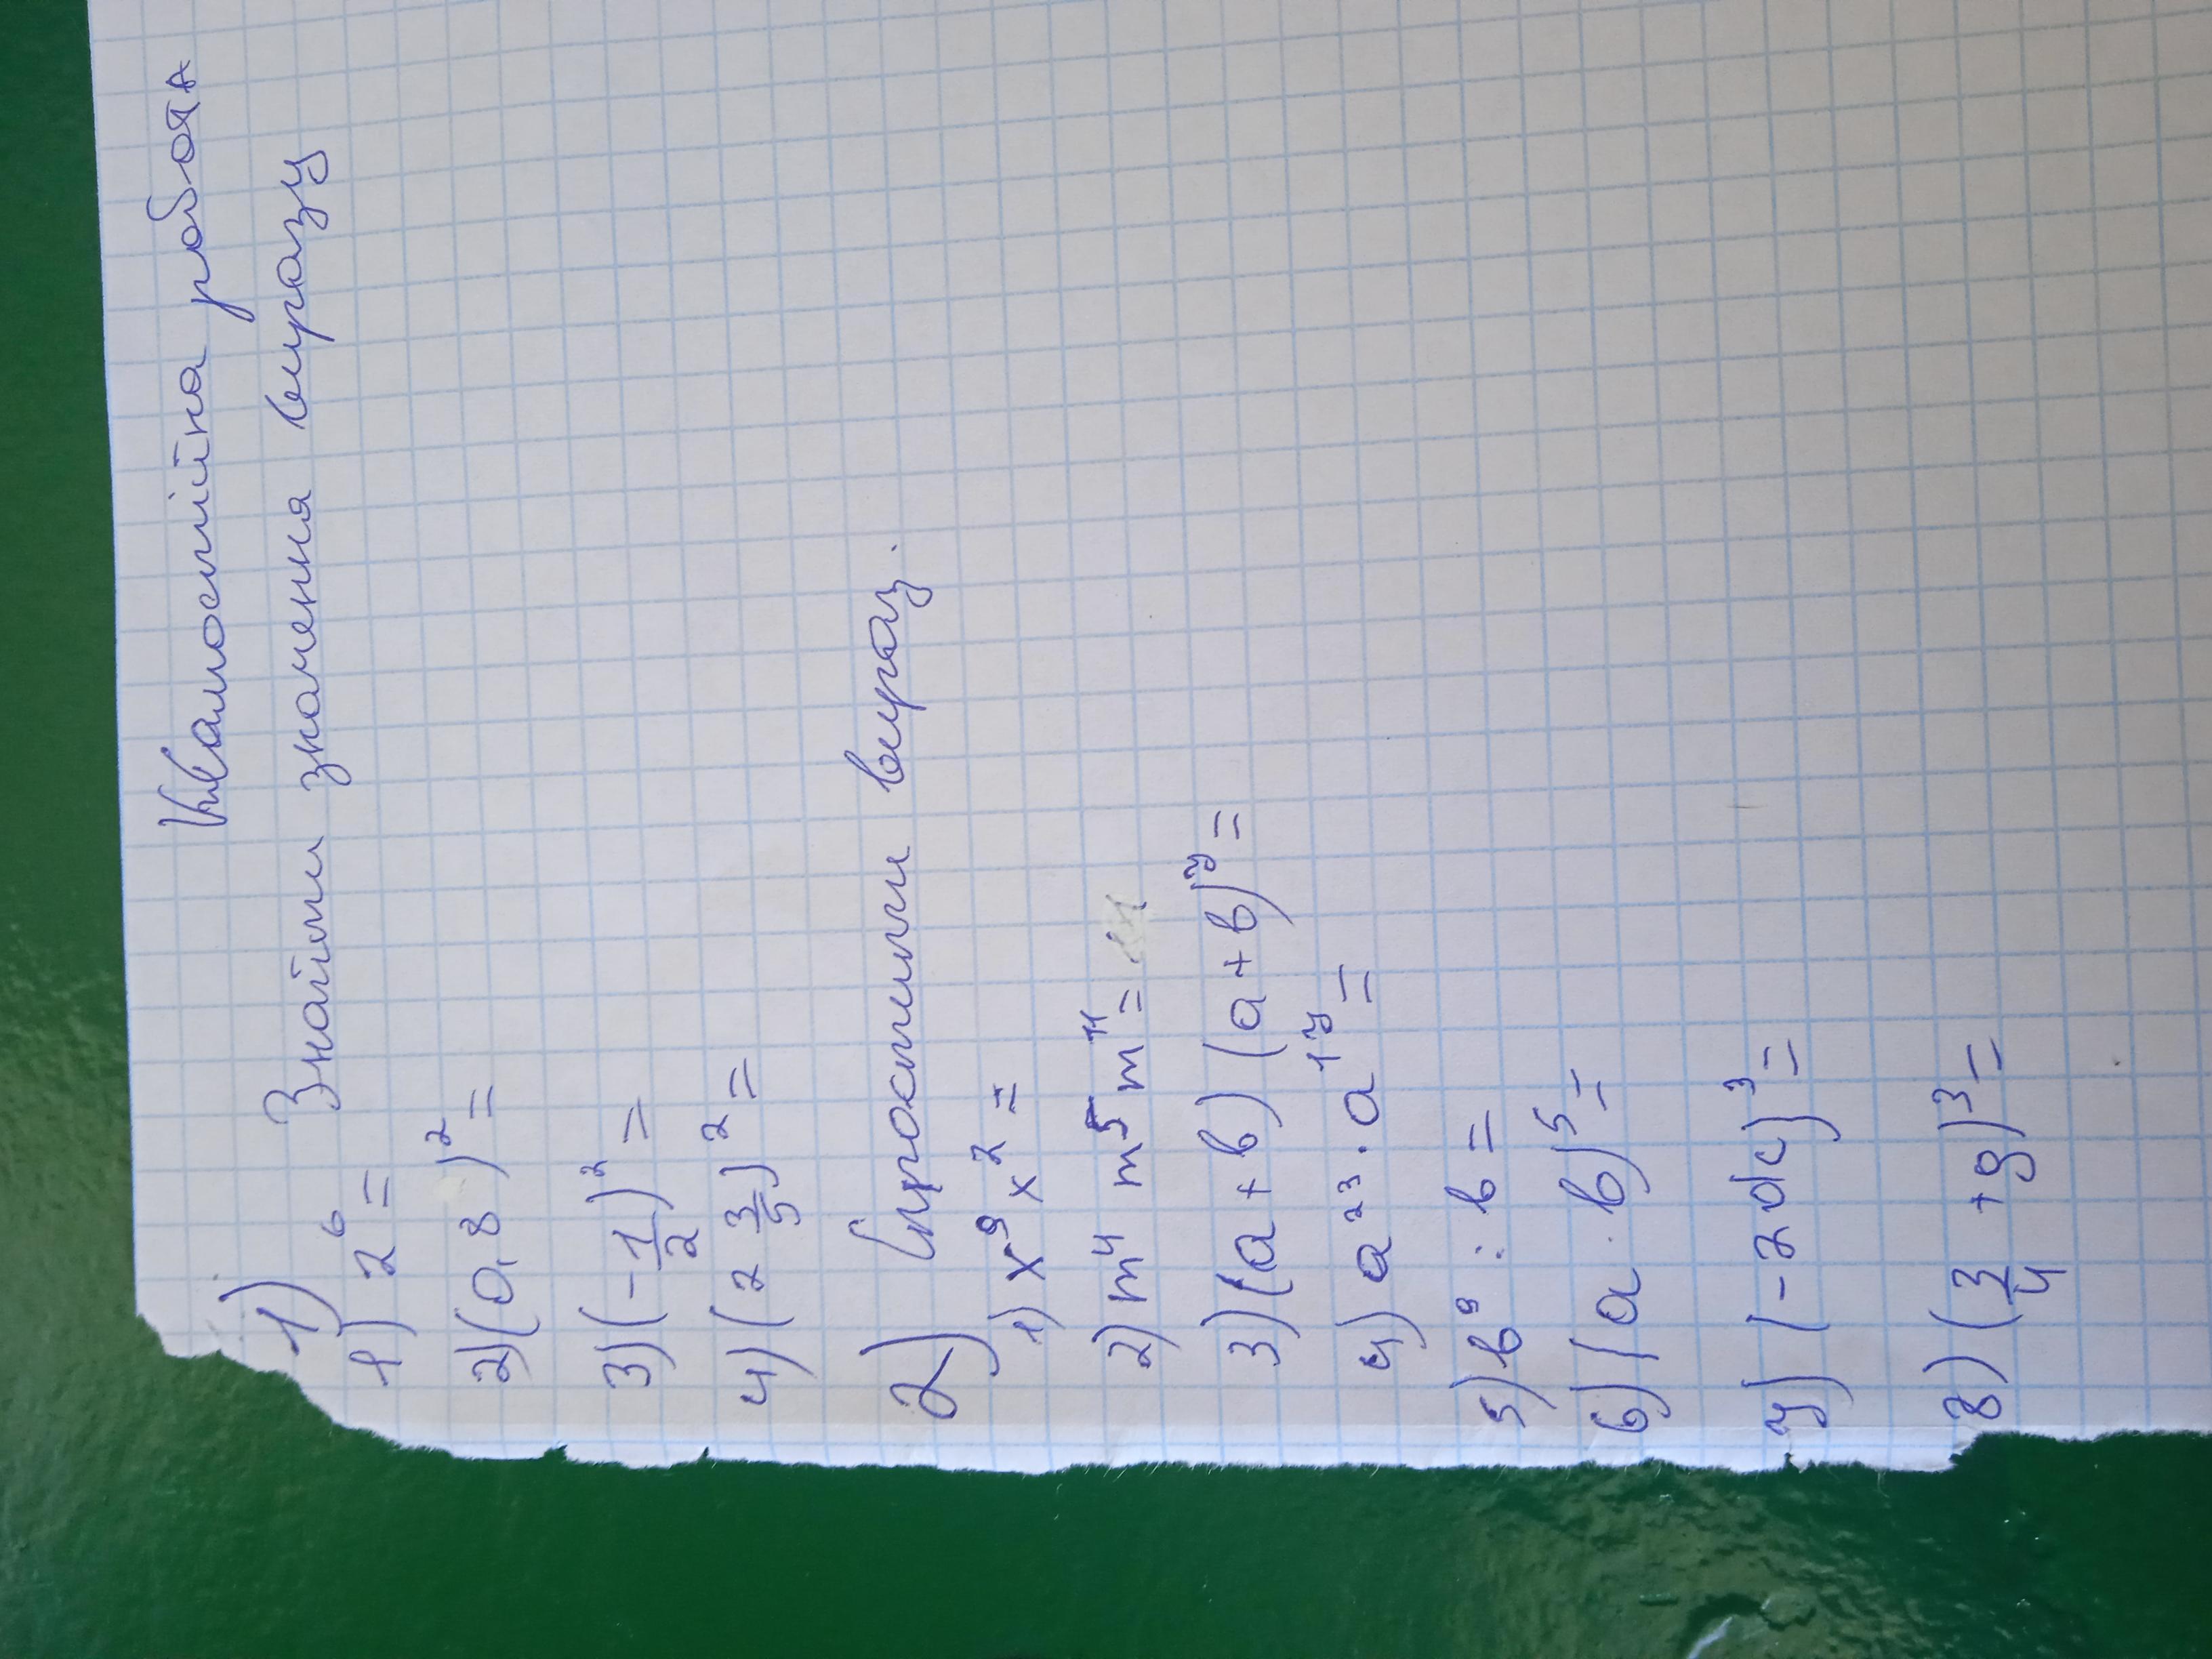 Самостійна робота
1) Знайти значення виразу
1) 2⁶ =
2) (0,8)² =
3) (-1/2)² =
4) (2 3/5)² =
2) Спростити вираз.
1) x⁹ x² =
2) m⁴ m⁵ m¹¹ =
3) (a + b) (a + b)⁷ =
4) a²³ · a¹⁷ =
5) b⁹ : b =
6) (a · b)⁵ =
7) (-2dc)³ =
8) (3/4 + g)³ =